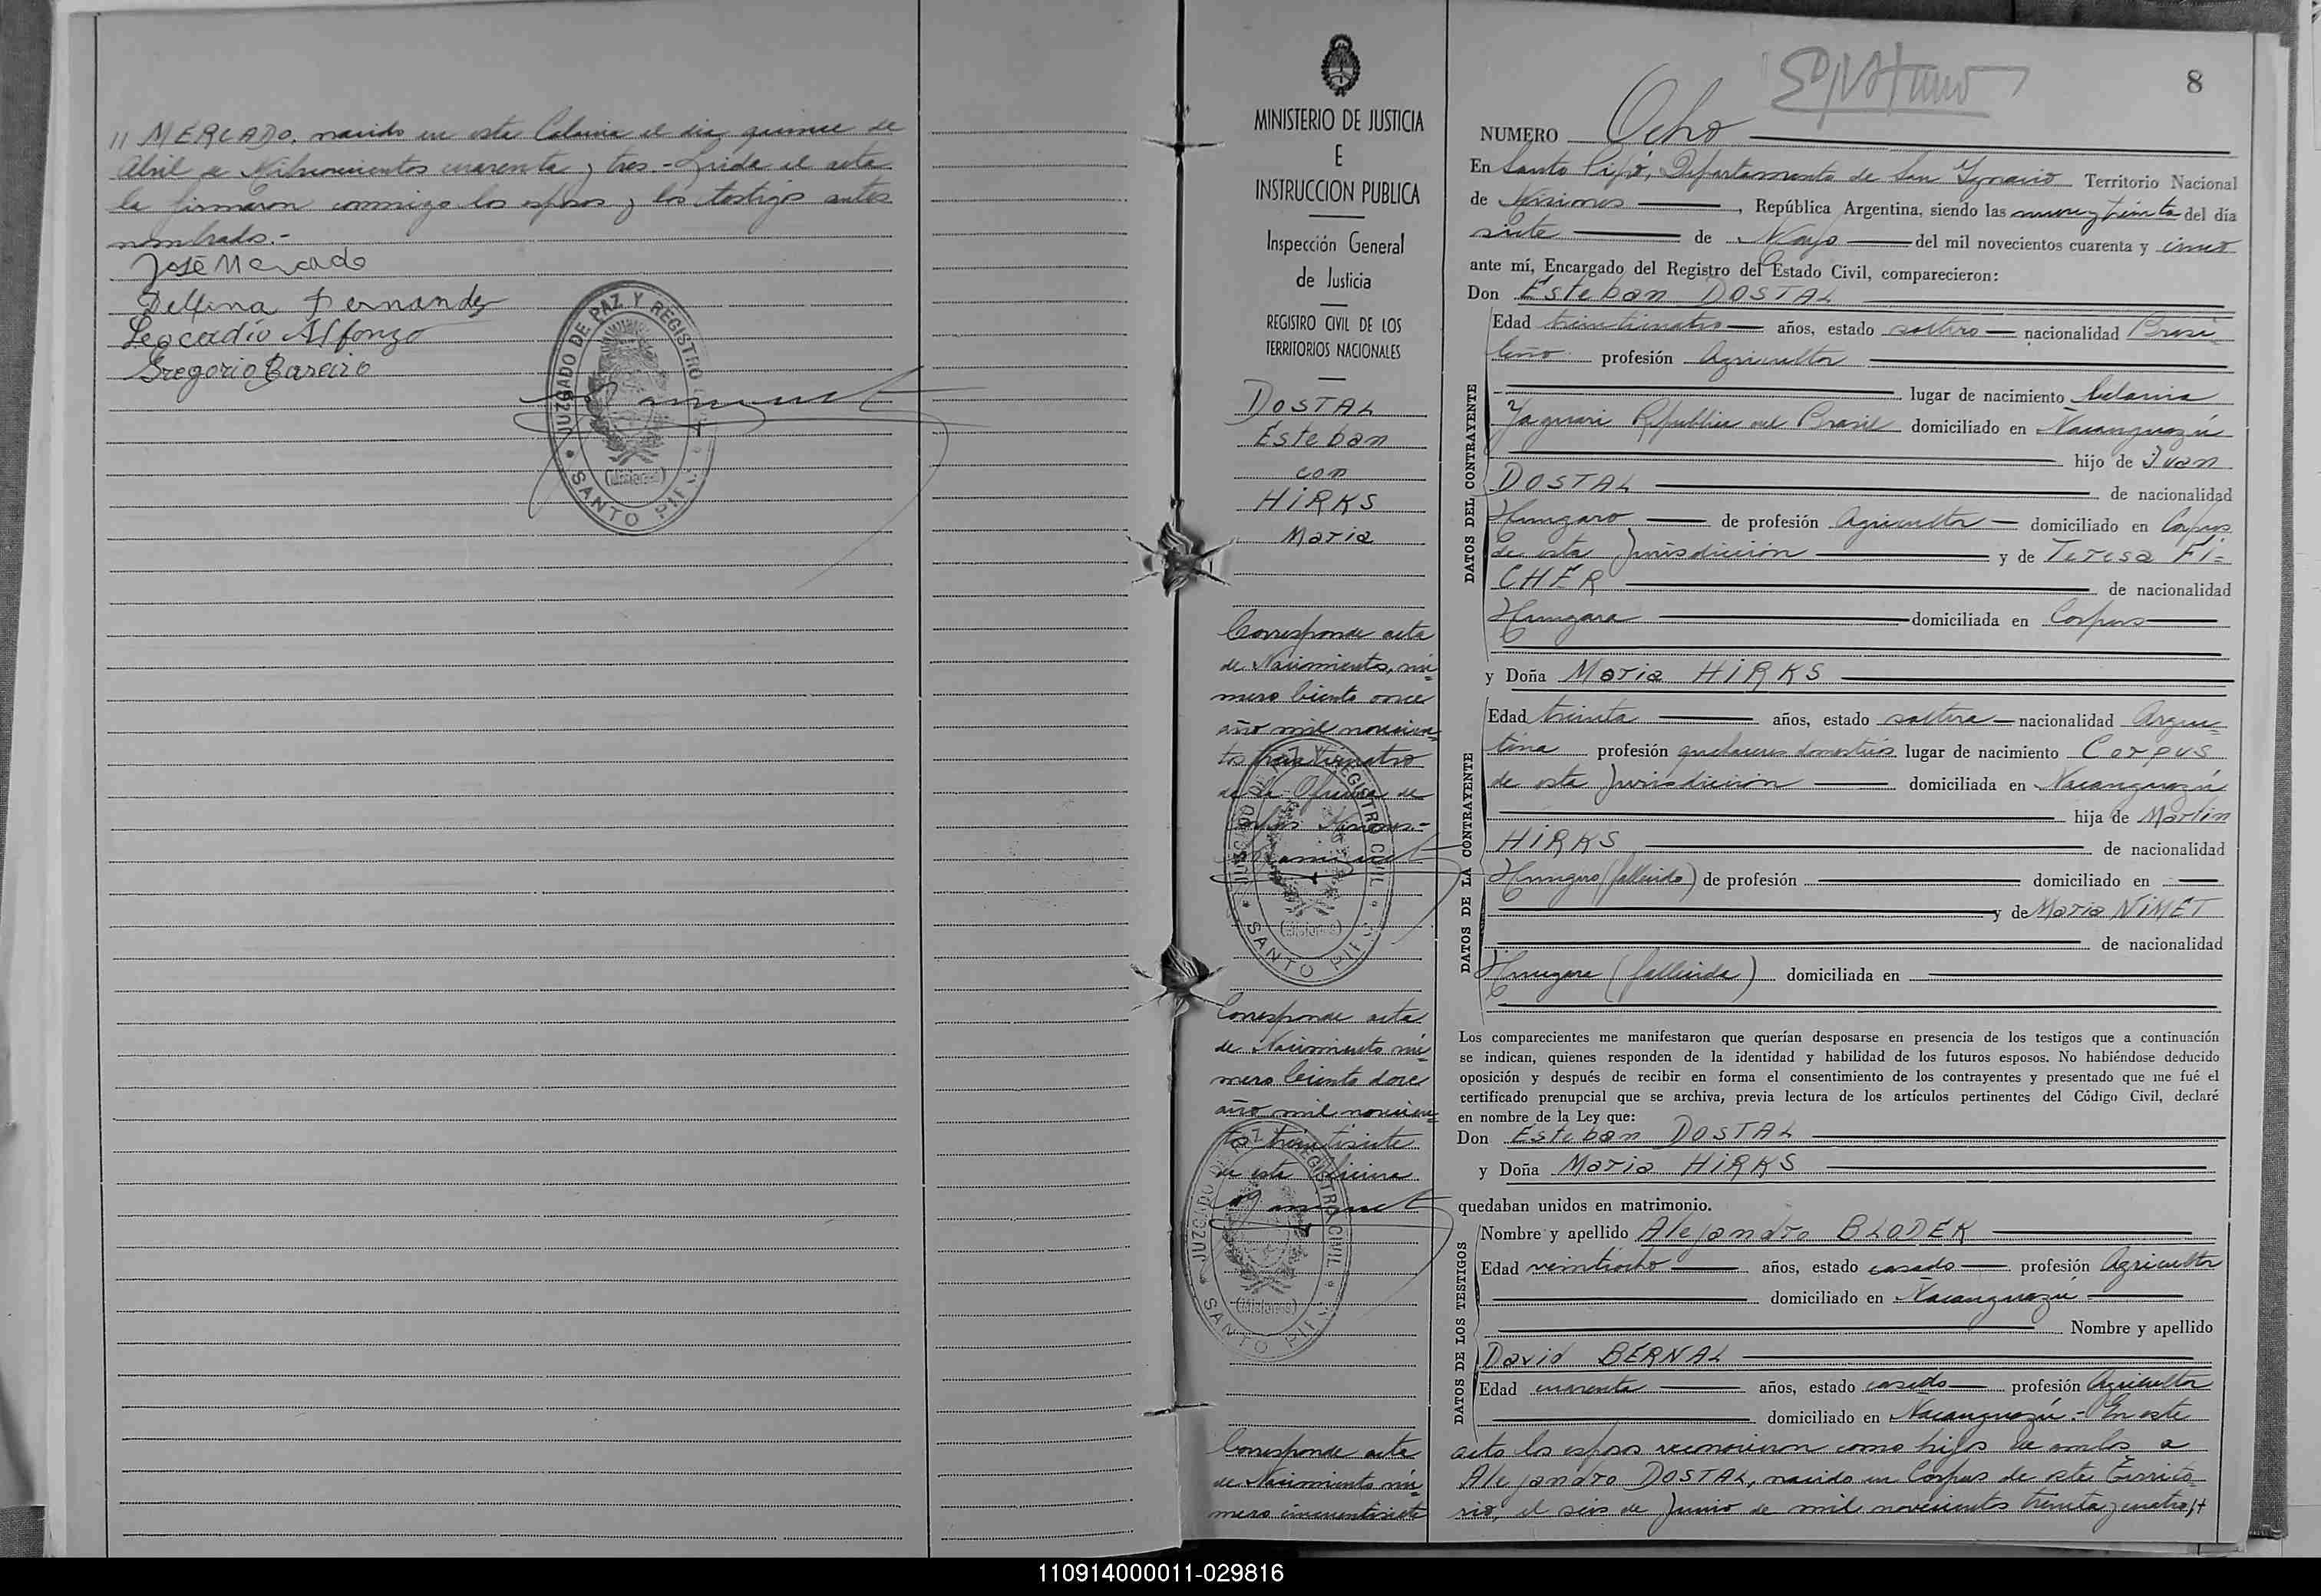 11 MERCADO, nacido en esta Colonia el dia quince de
Abril de Milnovecientos cuarenta y tres.- Leida el acta
la firmaron conmigo los esposos y los testigos antes
nombrados.-
José Mercado
Delfina Fernandez
Leocadio Alfonzo
Gregorio Bareiro
JUZGADO DE PAZ Y REGISTRO
(Misiones)
SANTO PIPO
MINISTERIO DE JUSTICIA
E
INSTRUCCION PUBLICA
Inspección General
de Justicia
REGISTRO CIVIL DE LOS
TERRITORIOS NACIONALES
DOSTAL
Esteban
con
HIRKS
Maria
Corresponde acta
de Nacimiento, nú=
mero Ciento once
año mil novecien=
tos treinticuatro
de la Oficina de
Corpus Misiones.-
JUZGADO DE PAZ Y REGISTRO CIVIL
(Misiones)
SANTO PIPO
Corresponde acta
de Nacimiento nú=
mero Ciento doce
año mil novecien=
tos treintisiete
de esta Oficina
JUZGADO DE PAZ Y REGISTRO CIVIL
(Misiones)
SANTO PIPO
Corresponde acta
de Nacimiento nú=
mero cincuentisiete
8
NUMERO Ocho
En Santo Pipó, Departamento de San Ygnacio Territorio Nacional
de Misiones, República Argentina, siendo las nueve y treinta del día
siete de Mayo del mil novecientos cuarenta y cinco
ante mí, Encargado del Registro del Estado Civil, comparecieron:
Don Esteban DOSTAL
DATOS DEL CONTRAYENTE
Edad treinticuatro años, estado soltero nacionalidad Brasi-
leño profesión Agricultor
lugar de nacimiento Colonia
Yaguari Republica del Brasil domiciliado en Ñacanguazú
hijo de Juan
DOSTAL de nacionalidad
Hungaro de profesión Agricultor domiciliado en Corpus
de esta Jurisdicción y de Teresa FI=
CHER de nacionalidad
Hungara domiciliada en Corpus
y Doña Maria HIRKS
DATOS DE LA CONTRAYENTE
Edad treinta años, estado soltera nacionalidad Argen-
tina profesión quehaceres domésticos lugar de nacimiento Corpus
de esta Jurisdicción domiciliada en Ñacanguazú
hija de Martin
HIRKS de nacionalidad
Hungaro (fallecido) de profesión domiciliado en
y de Maria NIMET
de nacionalidad
Hungara (fallecida) domiciliada en
Los comparecientes me manifestaron que querían desposarse en presencia de los testigos que a continuación
se indican, quienes responden de la identidad y habilidad de los futuros esposos. No habiéndose deducido
oposición y después de recibir en forma el consentimiento de los contrayentes y presentado que me fué el
certificado prenupcial que se archiva, previa lectura de los artículos pertinentes del Código Civil, declaré
en nombre de la Ley que:
Don Esteban DOSTAL
y Doña Maria HIRKS
quedaban unidos en matrimonio.
DATOS DE LOS TESTIGOS
Nombre y apellido Alejandro BLODEK
Edad veintiocho años, estado casado profesión Agricultor
domiciliado en Ñacanguazú
Nombre y apellido
David BERNAL
Edad cuarenta años, estado casado profesión Agricultor
domiciliado en Ñacanguazú.- En este
acto los esposos reconocieron como hijos de ambos a
Alejandro DOSTAL, nacido en Corpus de este Territo-
rio, el seis de Junio de mil novecientos treinta y cuatro,
110914000011-029816